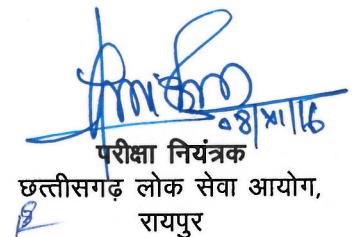 08/XI/16
परीक्षा नियंत्रक
छत्तीसगढ़ लोक सेवा आयोग,
रायपुर